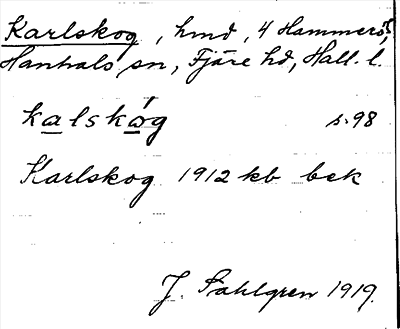 Karlskog, hmd, 4 Hammerö,
Hanhals sn, Fjäre hd, Hall. l.
kalskóg s. 98
Karlskog 1912 kb bek
J. Sahlgren 1919.